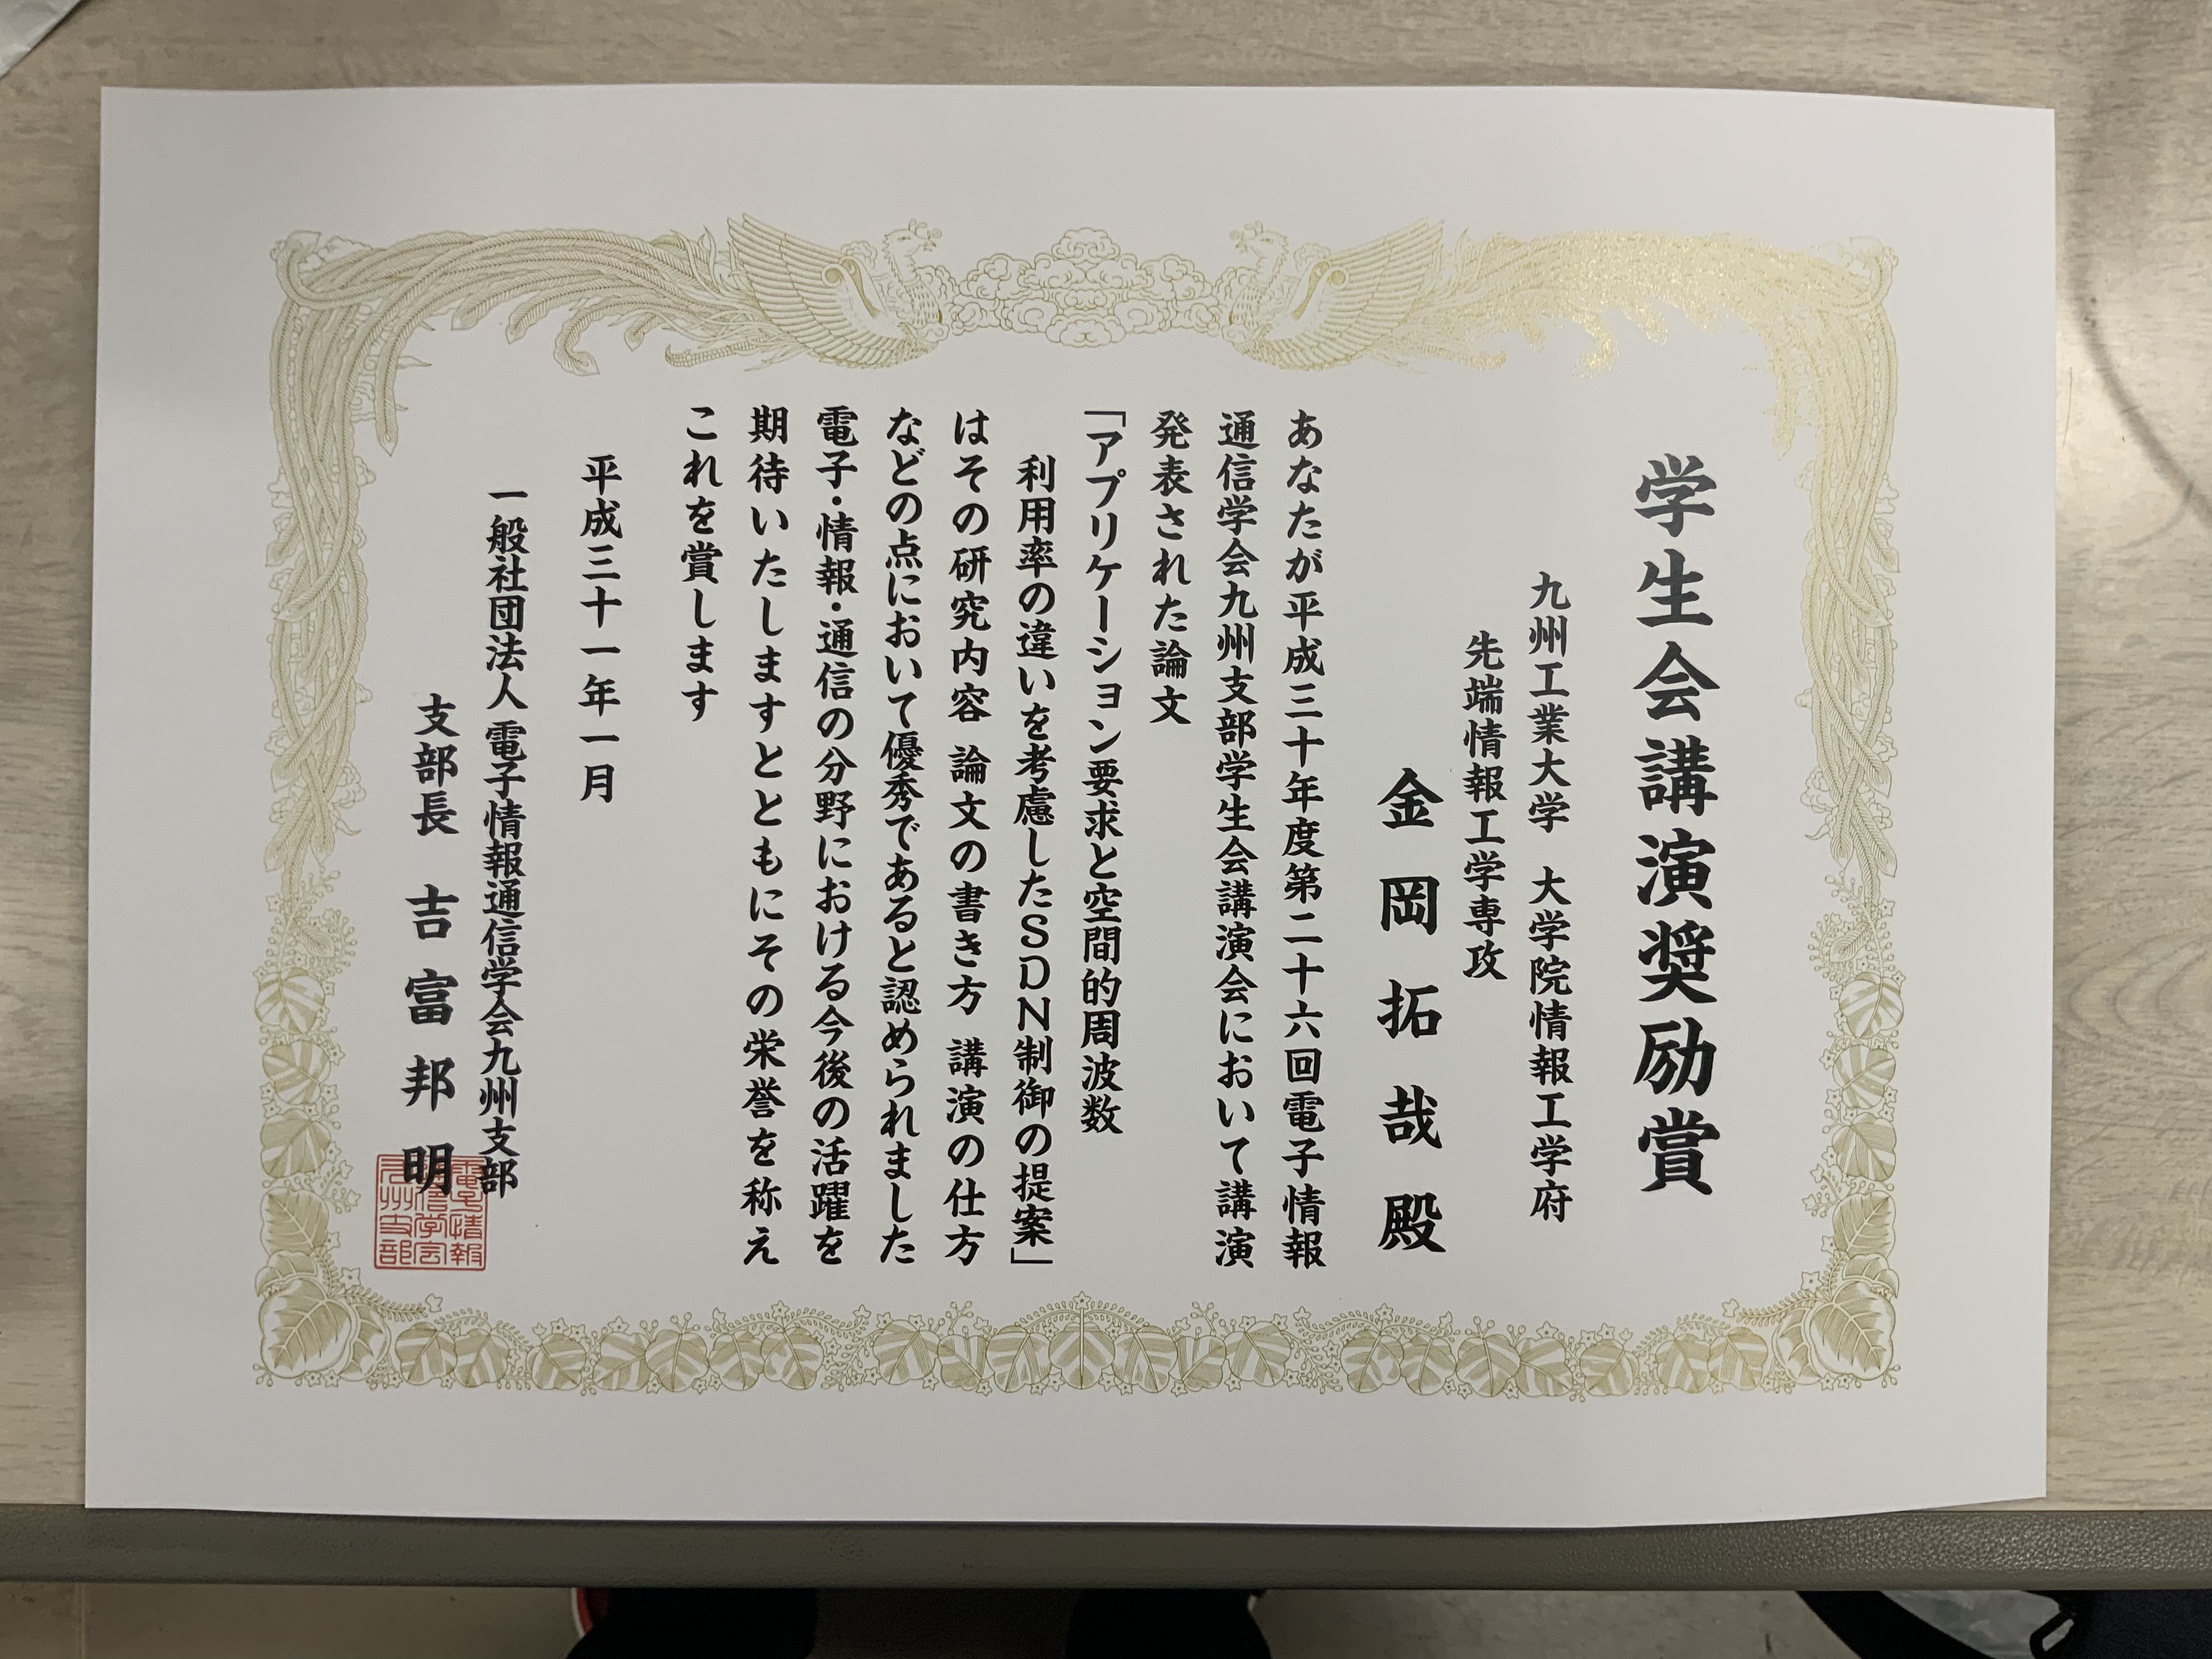 学生会講演奨励賞
九州工業大学 大学院情報工学府
先端情報工学専攻
金岡拓哉殿
あなたが平成三十年度第二十六回電子情報
通信学会九州支部学生会講演会において講演
発表された論文
「アプリケーション要求と空間的周波数
利用率の違いを考慮したSDN制御の提案」
はその研究内容 論文の書き方 講演の仕方
などの点において優秀であると認められました
電子・情報・通信の分野における今後の活躍を
期待いたしますとともにその栄誉を称え
これを賞します
平成三十一年一月
一般社団法人 電子情報通信学会九州支部
支部長 吉富邦明
電子情報
通信学会
九州支部